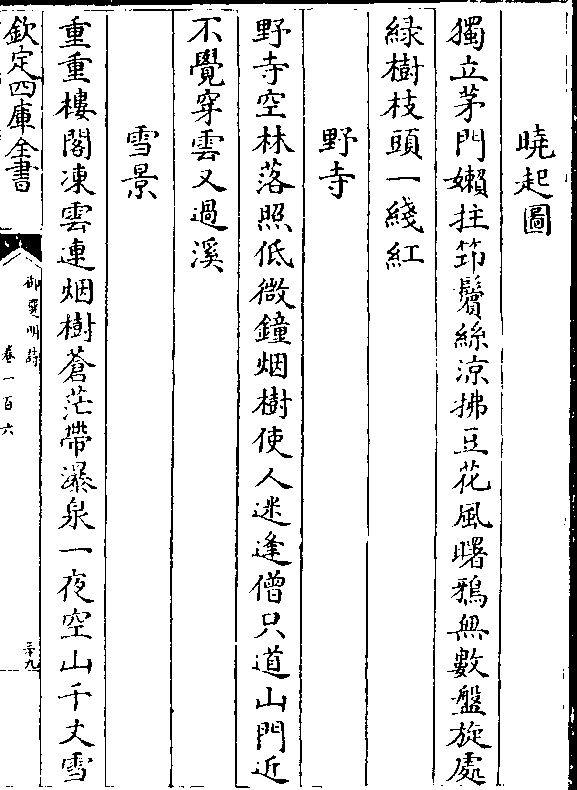 曉起圖
獨立茅門嬾拄笻鬢絲涼拂豆花風曙鴉無數盤旋處
緑樹枝頭一綫紅
野寺
野寺空林落照低微鐘烟樹使人迷逢僧只道山門近
不覺穿雲又過溪
雪景
重重樓閣凍雲連烟樹蒼茫帶瀑泉一夜空山千丈雪
欽定四庫全書
御選明詩
卷一百六
三十九